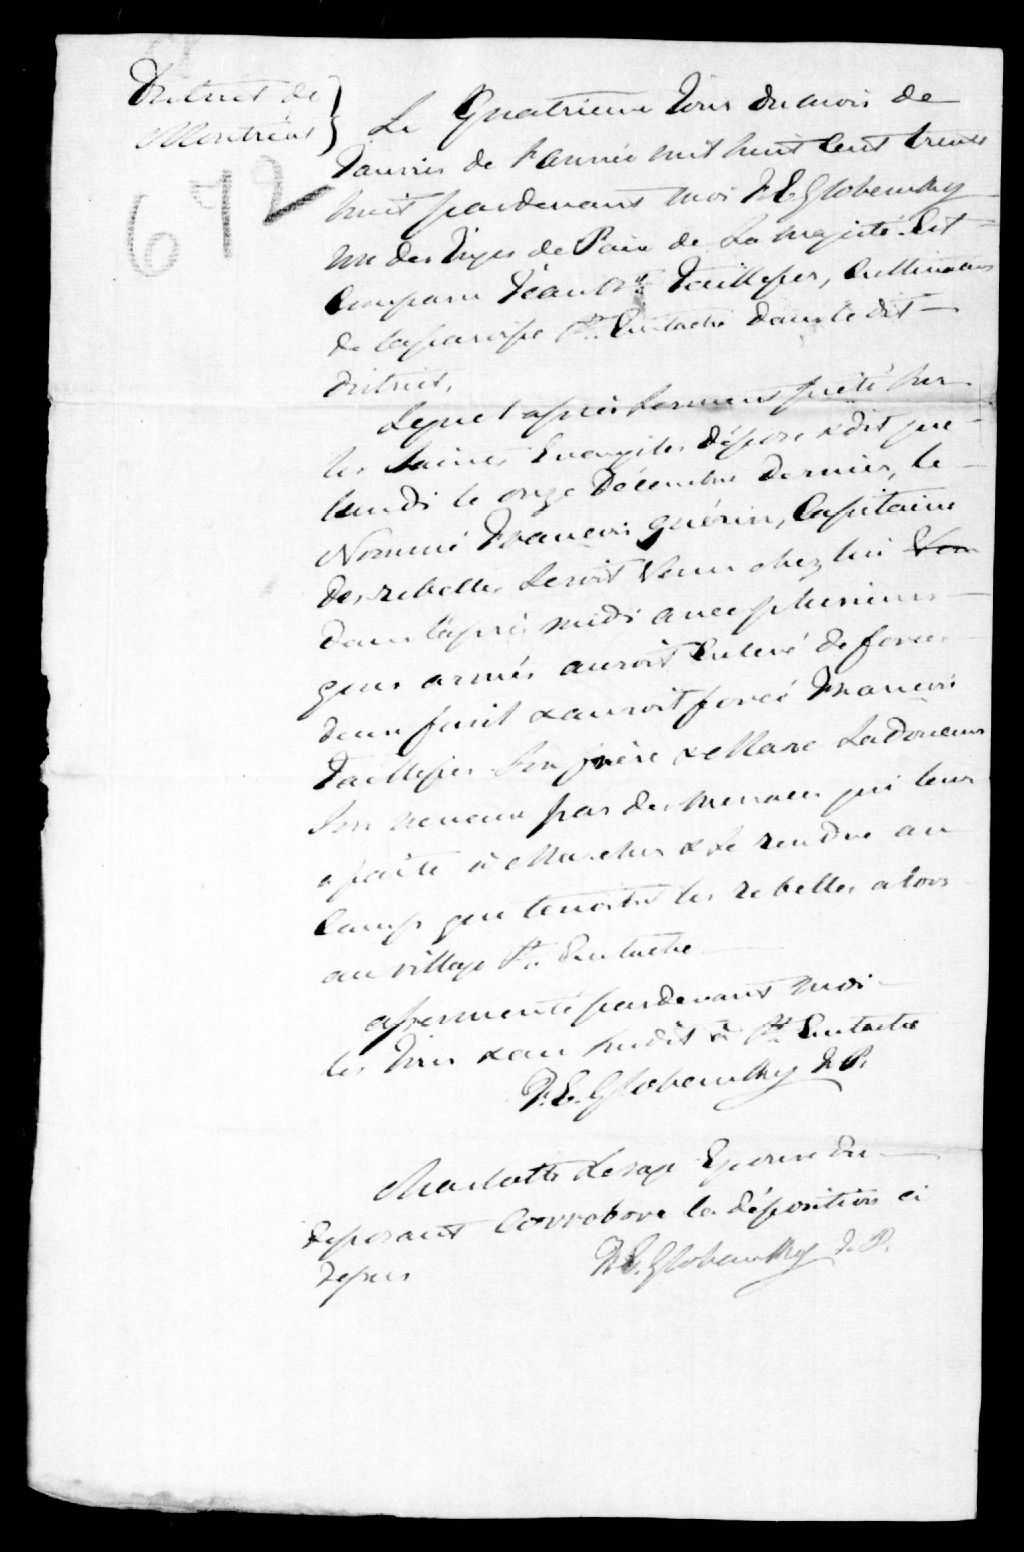 District de
Montréal
672
Le Quatrieme Jour du mois de
Janvier de l'année mil huit cent trente
huit pardevant moi F. E Globensky
un des Juges de Paix de Sa Majesté. Est
Comparu Jean Bte Taillefer, Cultivateur
de la paroisse St. Eustache dans le dit
District,
Lequel après serment prêté sur
les Saints Evangiles dépose & dit que
lundi le onze Décembre dernier, le
Nommé Francois Guérin, Capitaine
des rebelles seroit venu chez lui
dans l'après midi avec plusieurs
gens armés auroit enlevé de force
deux fusil & auroit forcé Francois
Taillefer son frère & Marc Ladouceur
son neveux par des menaces qui leur
a faite à Marcher & se rendre au
Camp que tenoit les rebelles alors
au village St. Eustache
Assermenté pardevant moi
les Jour & an susdit à St. Eustache
F. E. Globensky J. P.
Charlotte Lesage Epouse du
deposant Corrobore la déposition ci
dessus
F. E. Globensky J. P.